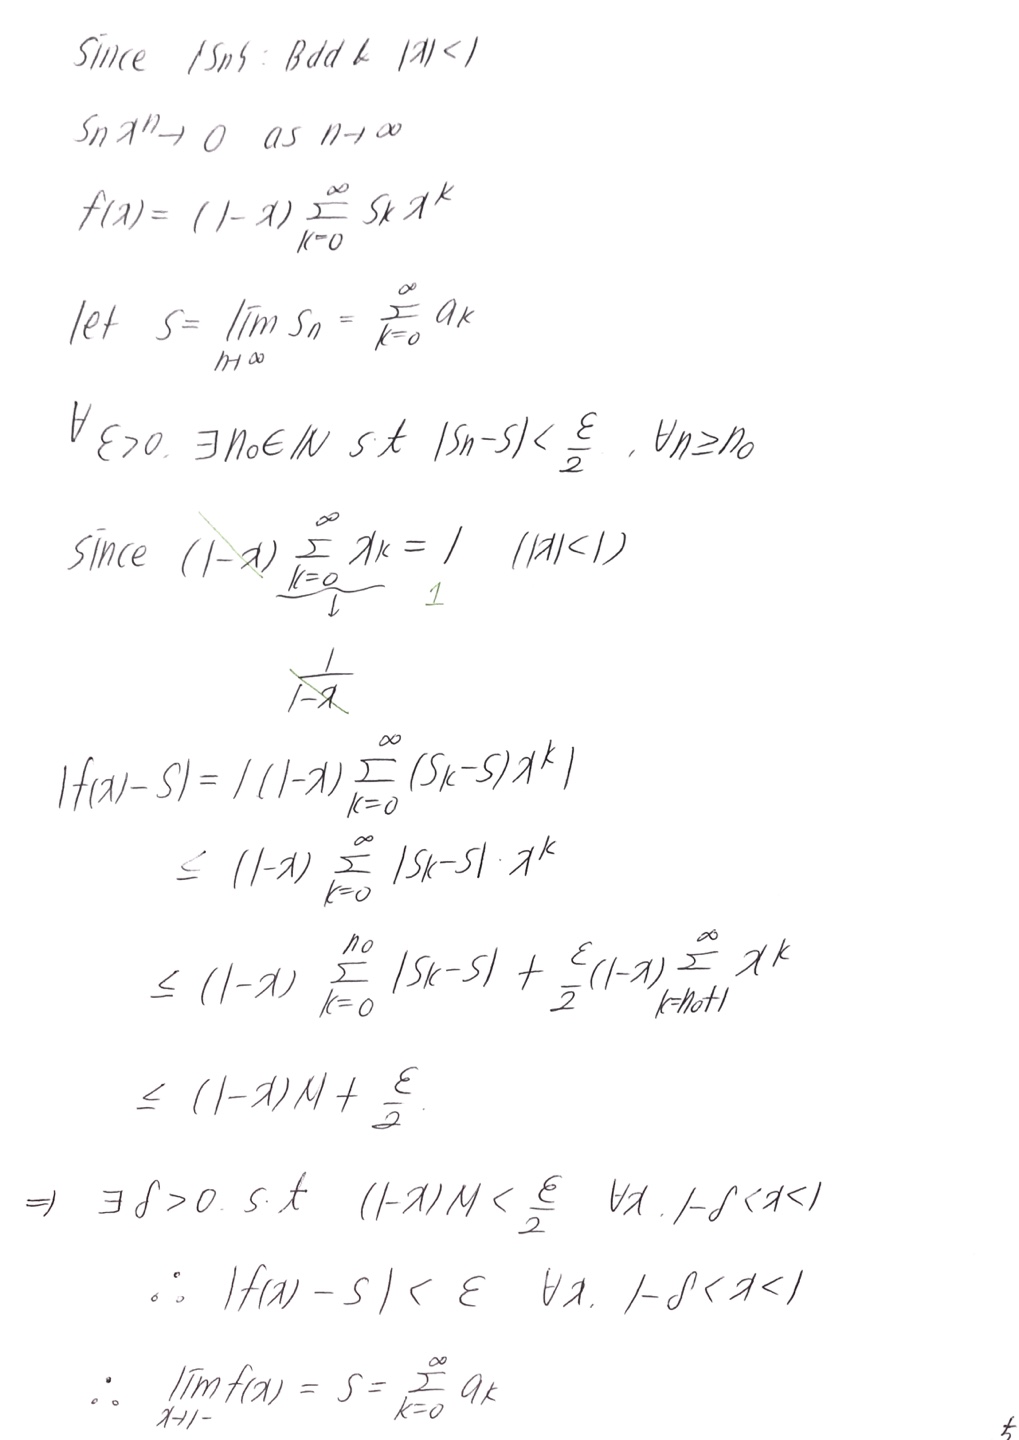 Since {Sn}: Bdd & |x|<1
Sn xⁿ → 0 as n→∞
f(x) = (1-x) ∑_{k=0}^{∞} Sk x^k
let S = lim_{n→∞} Sn = ∑_{k=0}^{∞} ak
∀ε>0. ∃n₀∈ℕ s.t |Sn-S| < ε/2 , ∀n≥n₀
Since (1-x) ∑_{k=0}^{∞} xk = 1 (|x|<1)
↓ 1
1/(1-x)
|f(x)-S| = |(1-x) ∑_{k=0}^{∞} (Sk-S)x^k|
≤ (1-x) ∑_{k=0}^{∞} |Sk-S|·x^k
≤ (1-x) ∑_{k=0}^{n₀} |Sk-S| + ε/2 (1-x) ∑_{k=n₀+1}^{∞} x^k
≤ (1-x)M + ε/2.
⇒ ∃δ>0. s.t (1-x)M < ε/2 ∀x. 1-δ<x<1
∴ |f(x)-S| < ε ∀x. 1-δ<x<1
∴ lim_{x→1-} f(x) = S = ∑_{k=0}^{∞} ak